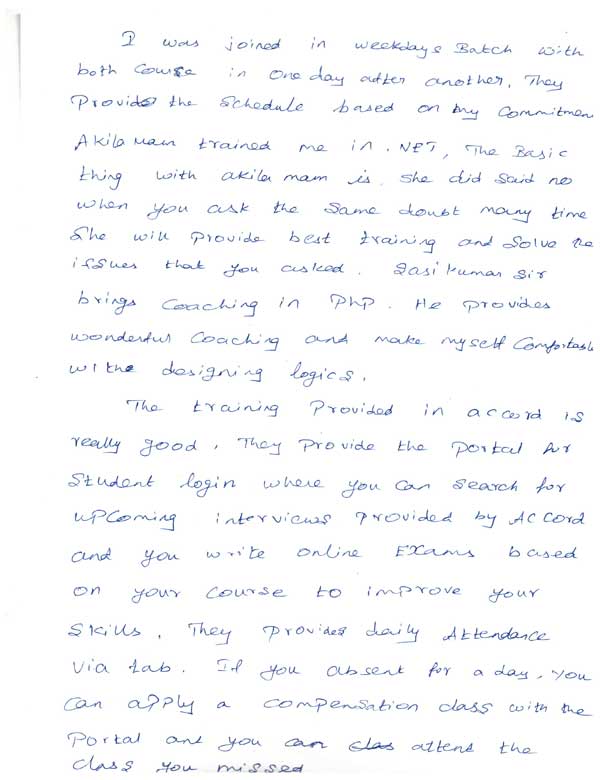 I was joined in weekdays Batch with
both course in one day after another. They
Provides the schedule based on my commitmen
Akila Mam trained me in .NET, The Basic
thing with akila mam is, she did said no
when you ask the same doubt many time
She will provide best training and solve the
issues that you asked. Sasikumar Sir
brings coaching in PhP. He provides
wonderful coaching and make myself comfortab
withe designing logics.
The training provided in accord is
really good. They provide the portal for
student login where you can search for
upcoming interviews provided by ACCord
and you write online Exams based
on your course to improve your
skills. They provides daily Attendance
via tab. If you absent for a day, you
can apply a compensation class with the
Portal and you can clas attend the
class you missed